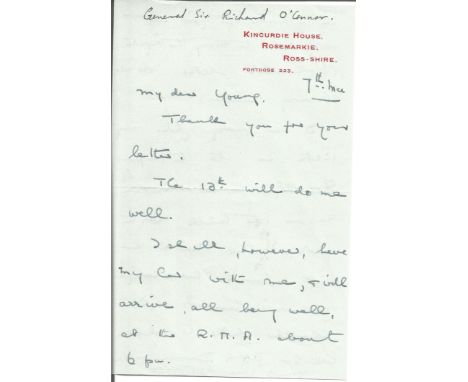 General Sir Richard O'Connor.
KINCURDIE HOUSE,
ROSEMARKIE,
ROSS-SHIRE.
FORTROSE 223.
7th
My dear Young.
Thank you for your
letter.
The 13th will do me
well.
I shall, however, have
my car with me, & will
arrive, all being well,
at the R.M.A. about
6 pm.